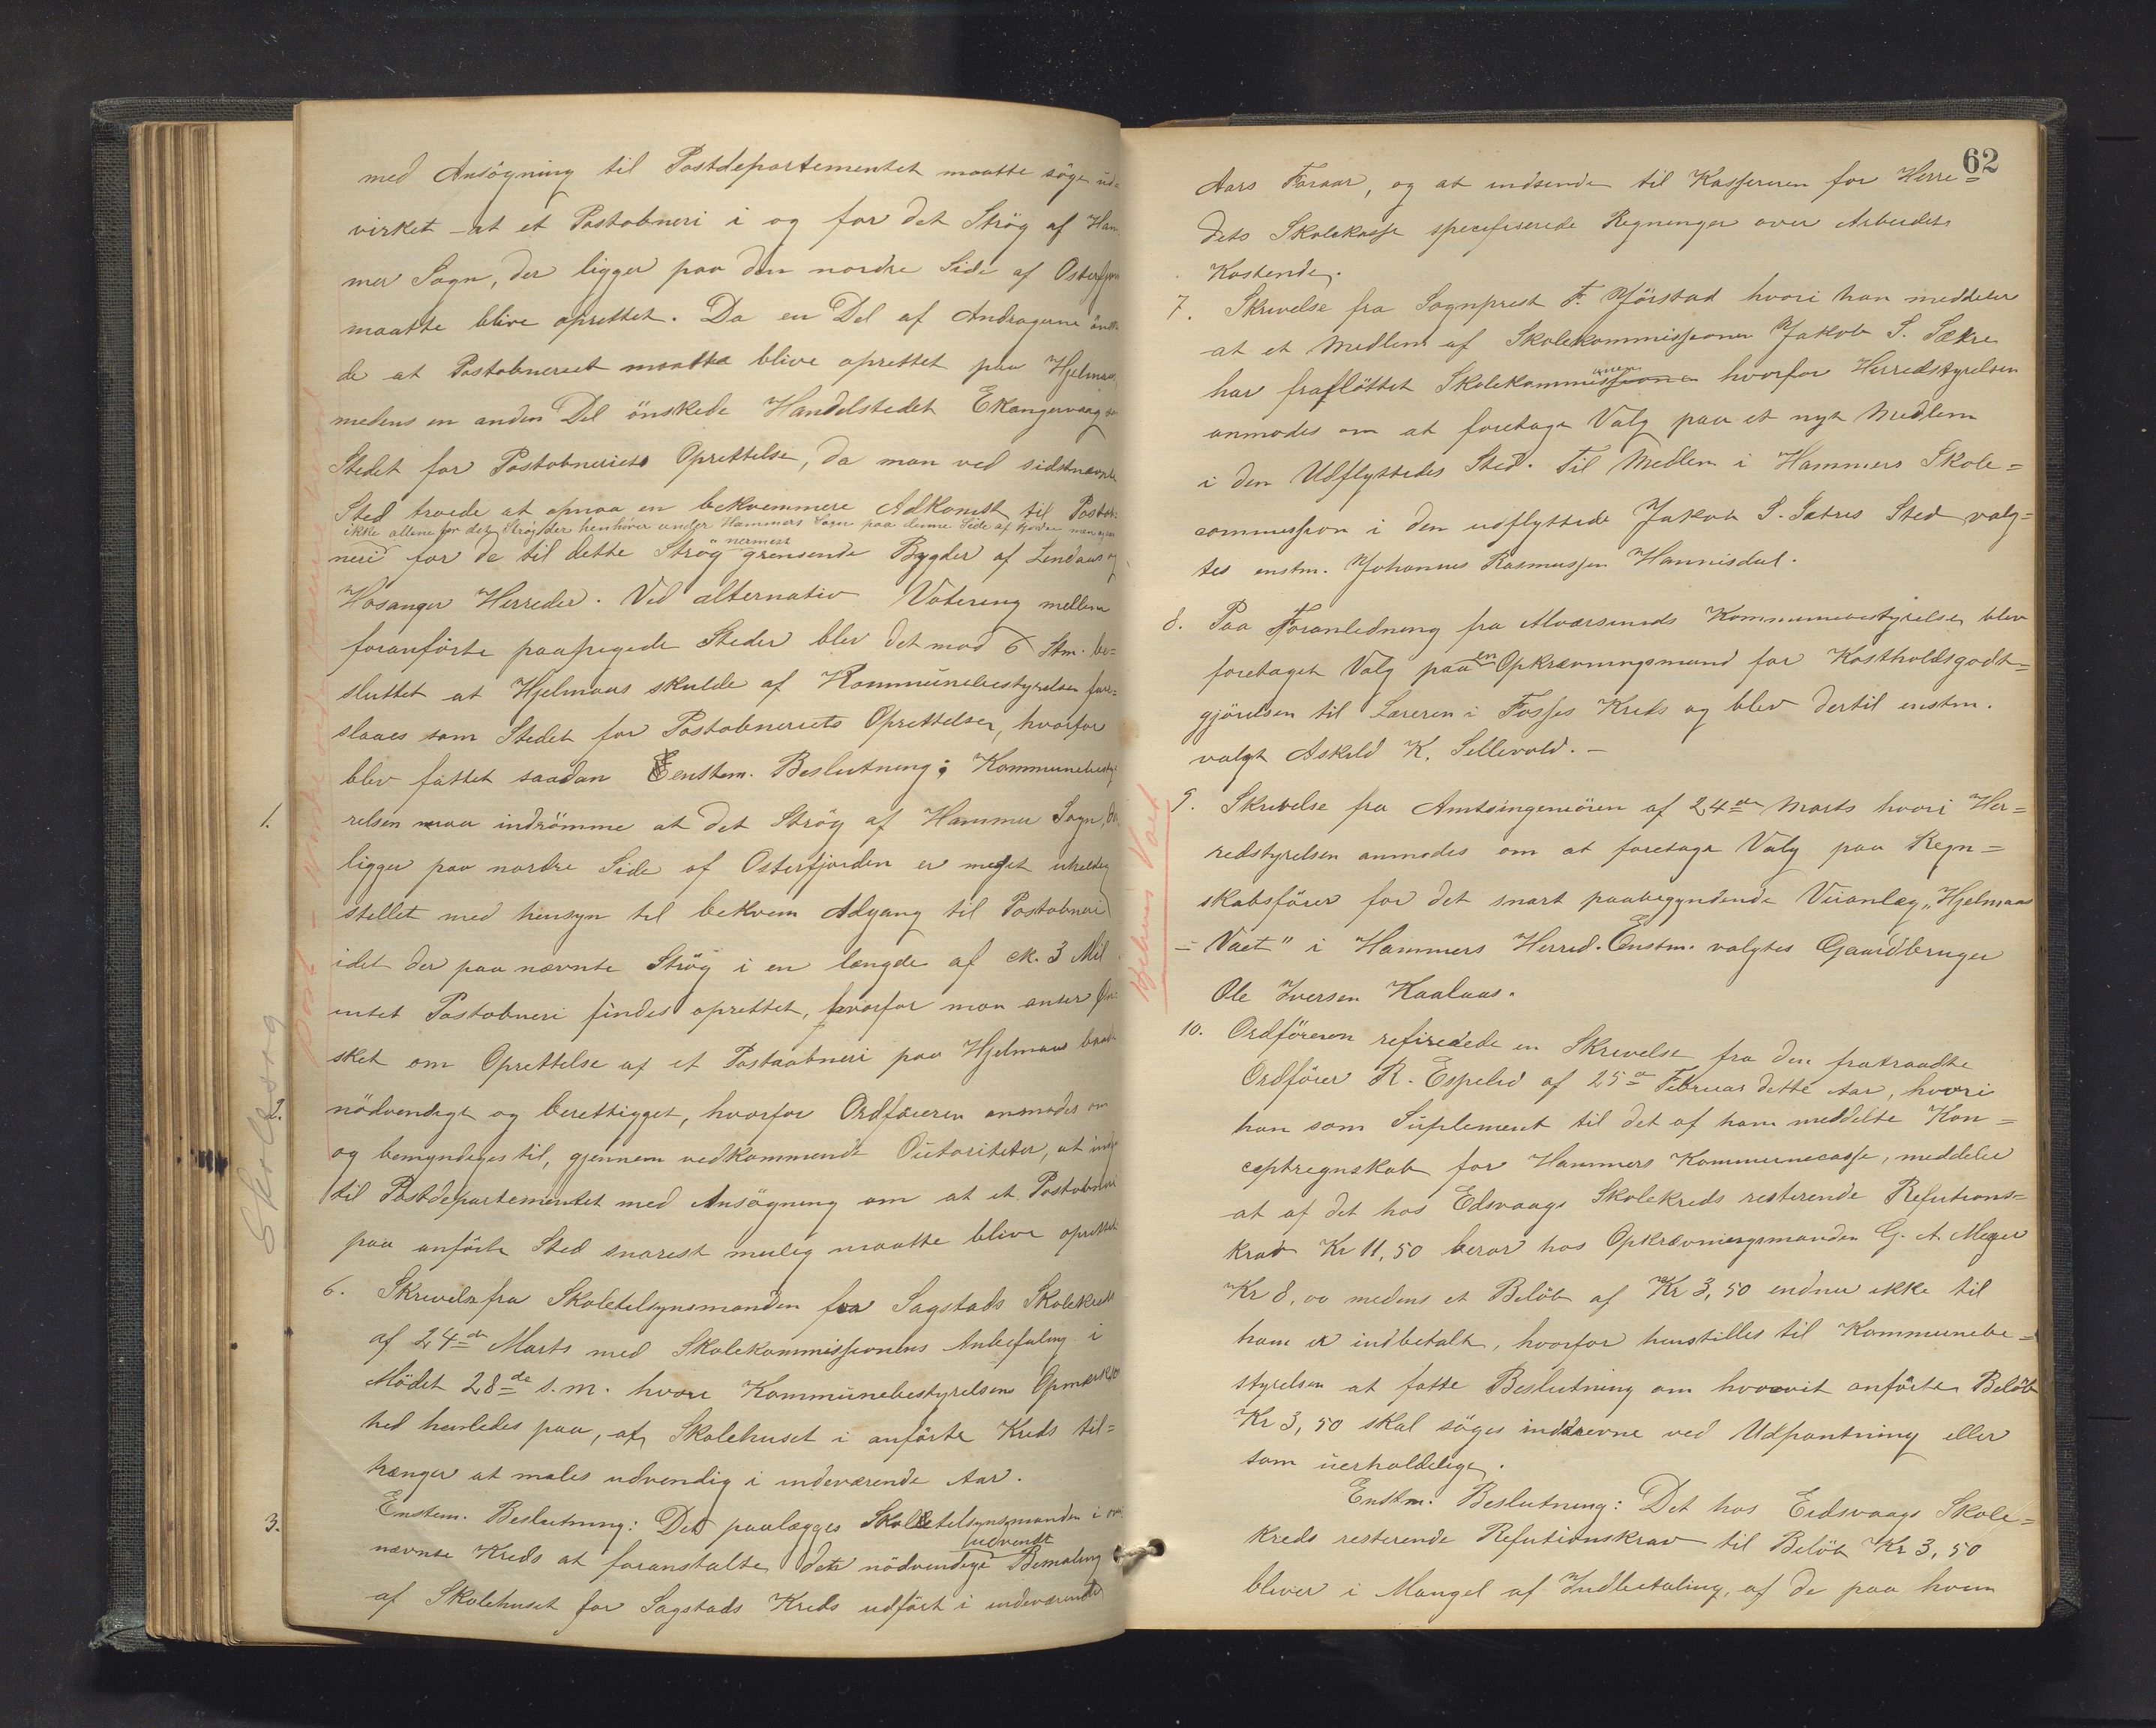 med Ansögning til Postdepartementet maatte söges ud=
virket at et Postobneri i og for det Strög af Ham=
mer Sogn, der ligger paa den nordre Side af Osterfjor
maatte blive oprettet. Da en Del af Andragerne önske
de at Postobneriet maatte blive oprettet paa Hjelmaas,
medens en anden Del önskede Handelstedet Ekangervaag
Stedet for Postobneriets Oprettelse, da man ved sidstnævnte
Sted troede at opnaa en bekvemmere Adkomst til Postob-
ikke allene for det Strög der henhörer under Hammers Sogn paa denne Side af Fjorden men og
neri for de til dette Strög nermest grensende Bygder af Lindaas og
Hosanger Herreder. Ved alternativ Votering mellem
foranförte paapegede Steder blev det mod 6 Stm. be=
sluttet at Hjelmaas skulde af Kommunebestyrelsen fore=
slaaes som Stedet for Postobneriets Oprettelse, hvorfor
blev fattet saadan Eenstem. Beslutning: Kommunebesty-
1. relsen maa indrömme at det Strög af Hammer Sogn, der
ligger paa nordre Side af Osterfjorden er meget uheldig
stellet med hensyn til bekvem Adgang til Postobneri
idet der paa nævnte Strög i en længde af ck. 3 Mil
intet Postobneri findes oprettet, hvorfor man anser Ön=
sket om Oprettelse af et Postaabneri paa Hjelmaas baade
2. nödvendigt og berettigget, hvorfor Ordföreren anmodes om
og bemyndiges til, gjennem vedkommende Outoriteter, at indgaa
til Postdepartementet med Ansögning om at et Postobneri
paa anförte Sted snarest mulig maatte blive oprettet.
Skolesag
6. Skrivelse fra Skoletilsynsmanden for Sagstads Skolekreds
af 24de Marts med Skolekommissionens Anbefaling i
Mödet 28de s.m. hvori Kommunebestyrelsens Opmærksom
hed henledes paa, at Skolehuset i anförte Kreds til=
trænger at males udvendig i indeværende Aar.
3. Enstem. Beslutning: Det paalægges Skoletilsynsmanden i om=
nævnte Kreds at foranstalte den nödvendige udvendt Bemaling
af Skolehuset for Sagstads Kreds udfört i indeværende
62
Aars Foraar, og at indsende til Kassereren for Herre=
dets Skolekasse specefiserede Regninger over Arbeidets
Kostende.
7. Skrivelse fra Sognprest F. Hjörstad hvori han meddeler
at et Medlem af Skolekommissionen Jakob S. Sætre
har fraflöttet Skolekommissionen hvorfor Herredstyrelsen
anmodes om at foretage Valg paa et nyt Medlem
i den Udflyttedes Sted. Til Medlem i Hammers Skole=
commission i den udflyttede Jakob S. Sætres Sted valg=
tes enstm. Johannes Rasmussen Hannisdal.
8. Paa Foranledning fra Alværsunds Kommunebestyrelse blev
foretaget Valg paa en Opkrævningsmand for Kostholdsgodt=
gjörelsen til Læreren i Fosses Kreds og blev dertil enstm.
valgt Askild K. Sellevold.
Hjelmaas Vaet
9. Skrivelse fra Amtsingeniören af 24de Marts hvori Her=
redstyrelsen anmodes om at foretage Valg paa Regn=
skabsförer for det snart paabegyndende Veianlæg „Hjelmaas
- Vaet" i Hammers Herred. Enstm. valgtes Gaardbruger
Ole Iversen Kaalaas.
10. Ordföreren refirerede en Skrivelse fra den fratraadte
Ordförer R. Espelid af 25de Februar dette Aar, hvori
han som Suplement til det af ham meddelte Kon=
ceptregnskab for Hammers Kommunecasse, meddeler
at af det hos Edsvaags Skolekreds resterende Refutions=
krav Kr 11,50 beror hos Opkrævningsmanden G. A. Meyer
Kr 8,00 medens et Belöb af Kr 3,50 endnu ikke til
ham er indbetalt, hvorfor henstilles til Kommunebe=
styrelsen at fatte Beslutning om hvorvit anförte Belöb
Kr 3,50 skal söges inddrevne ved Udpantning eller
som uerholdelige.
Enstm. Beslutning: Det hos Eidsvaags Skole=
kreds resterende Refutionskrav til Belöb Kr 3,50
bliver i Mangel af Indbetaling, af de paa hvem